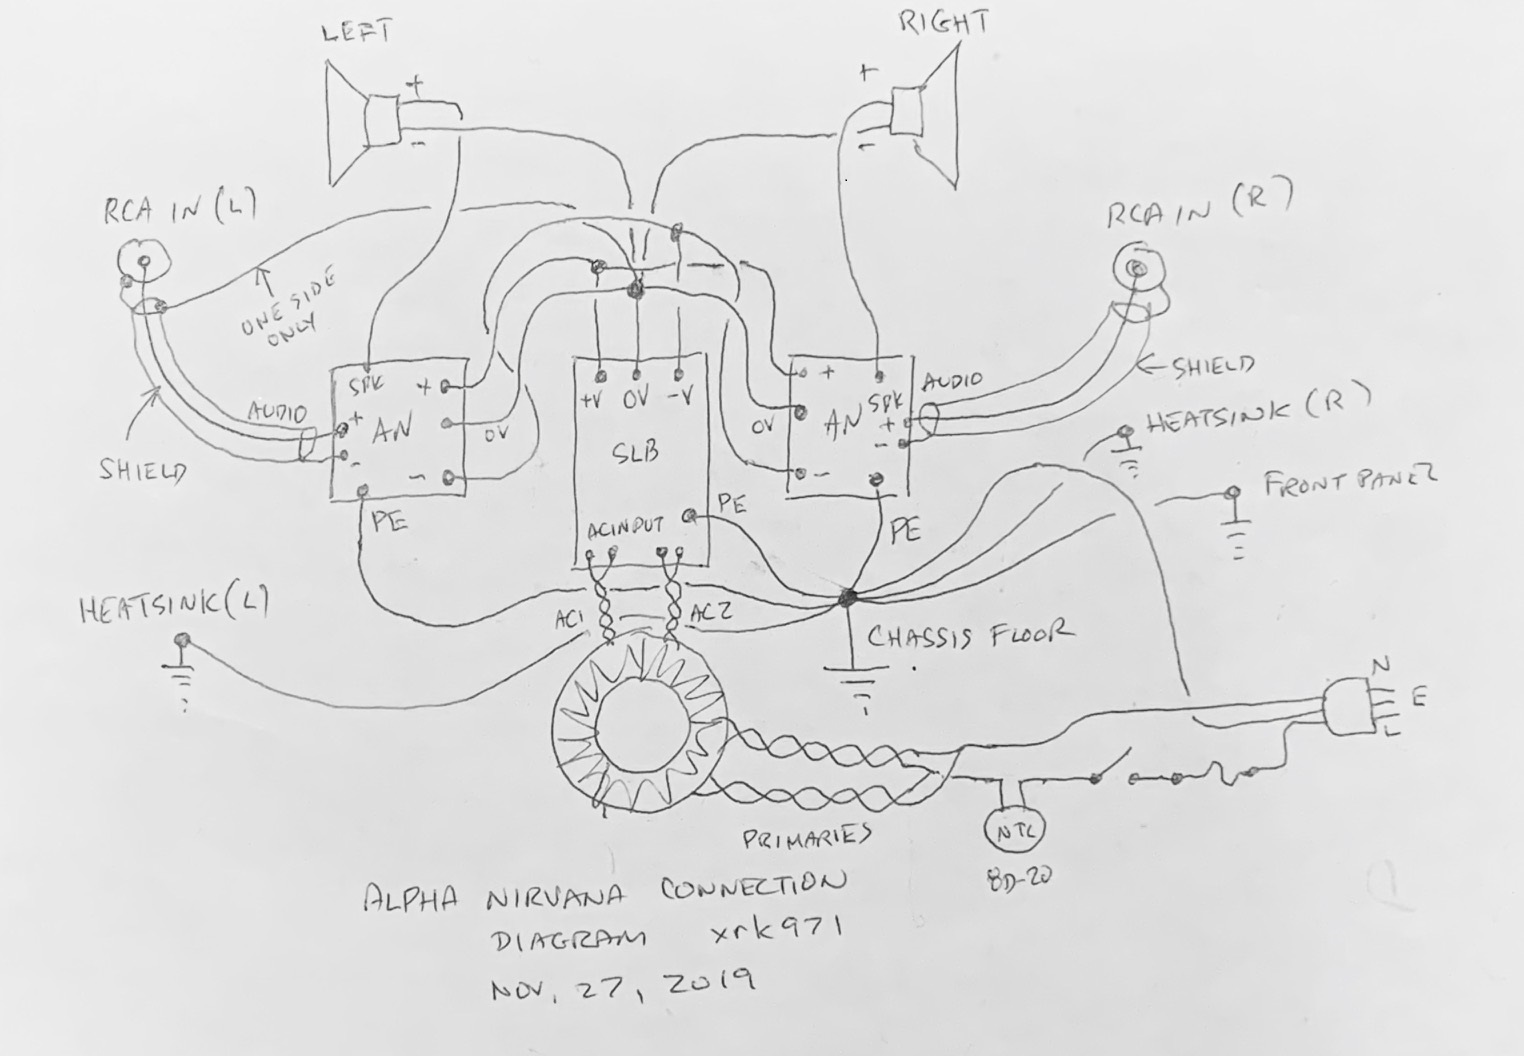 LEFT
RIGHT
+
-
+
-
RCA IN (L)
RCA IN (R)
ONE SIDE
ONLY
SHIELD
AUDIO
SPK
+
+
AN
-
-
0V
PE
+V 0V -V
SLB
AC INPUT
PE
+
SPK
AN
+
-
-
0V
AUDIO
PE
SHIELD
HEATSINK (R)
FRONT PANEL
HEATSINK (L)
AC1
AC2
CHASSIS FLOOR
N
E
L
PRIMARIES
NTC
8D-20
ALPHA NIRVANA CONNECTION
DIAGRAM xrk971
NOV. 27, 2019